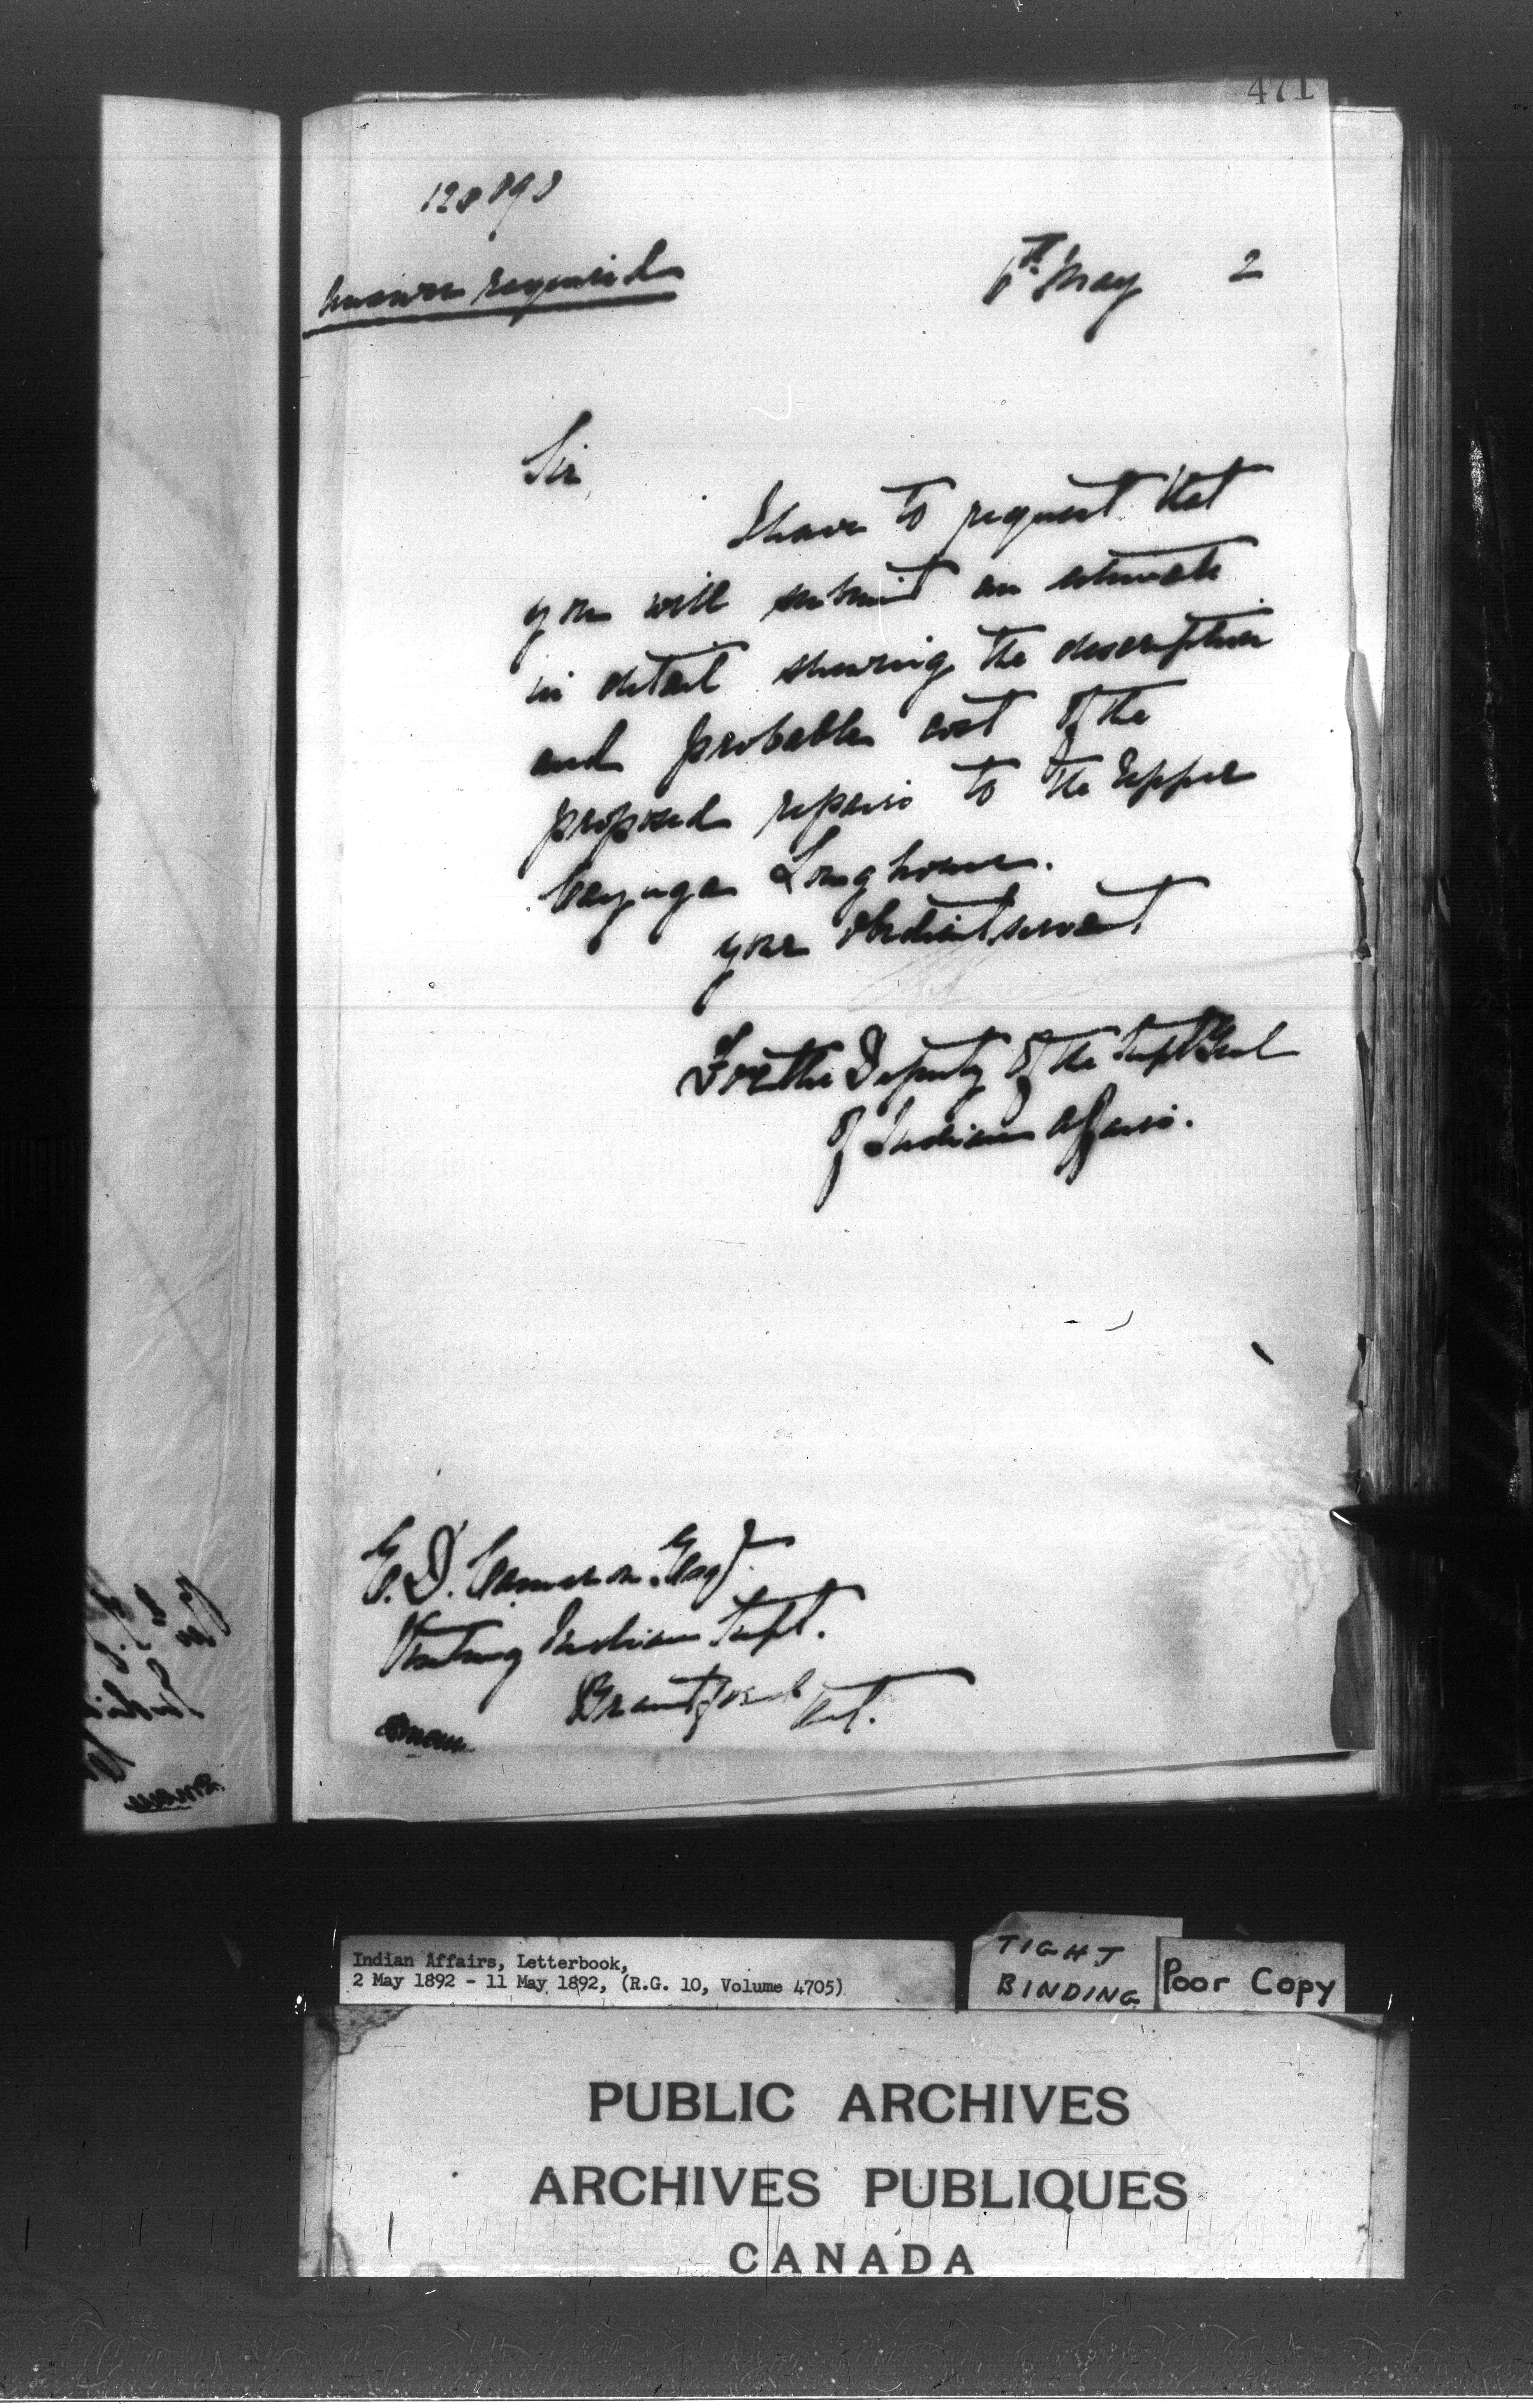 471
128898
Answer required
6th May 2
Sir
I have to request that
you will submit an estimate
in detail shewing the description
and probable cost of the
proposed repairs to the Upper
Cayuga Longhouse.
your obedient servant
For the Deputy of the Supt Genl
of Indian Affairs.
E. D. Cameron Esqr.
Visiting Indian Supt.
Brantford Ont.
Indian Affairs, Letterbook,
2 May 1892 - 11 May 1892, (R.G. 10, Volume 4705)
TIGHT
BINDING
Poor Copy
PUBLIC ARCHIVES
ARCHIVES PUBLIQUES
CANADA